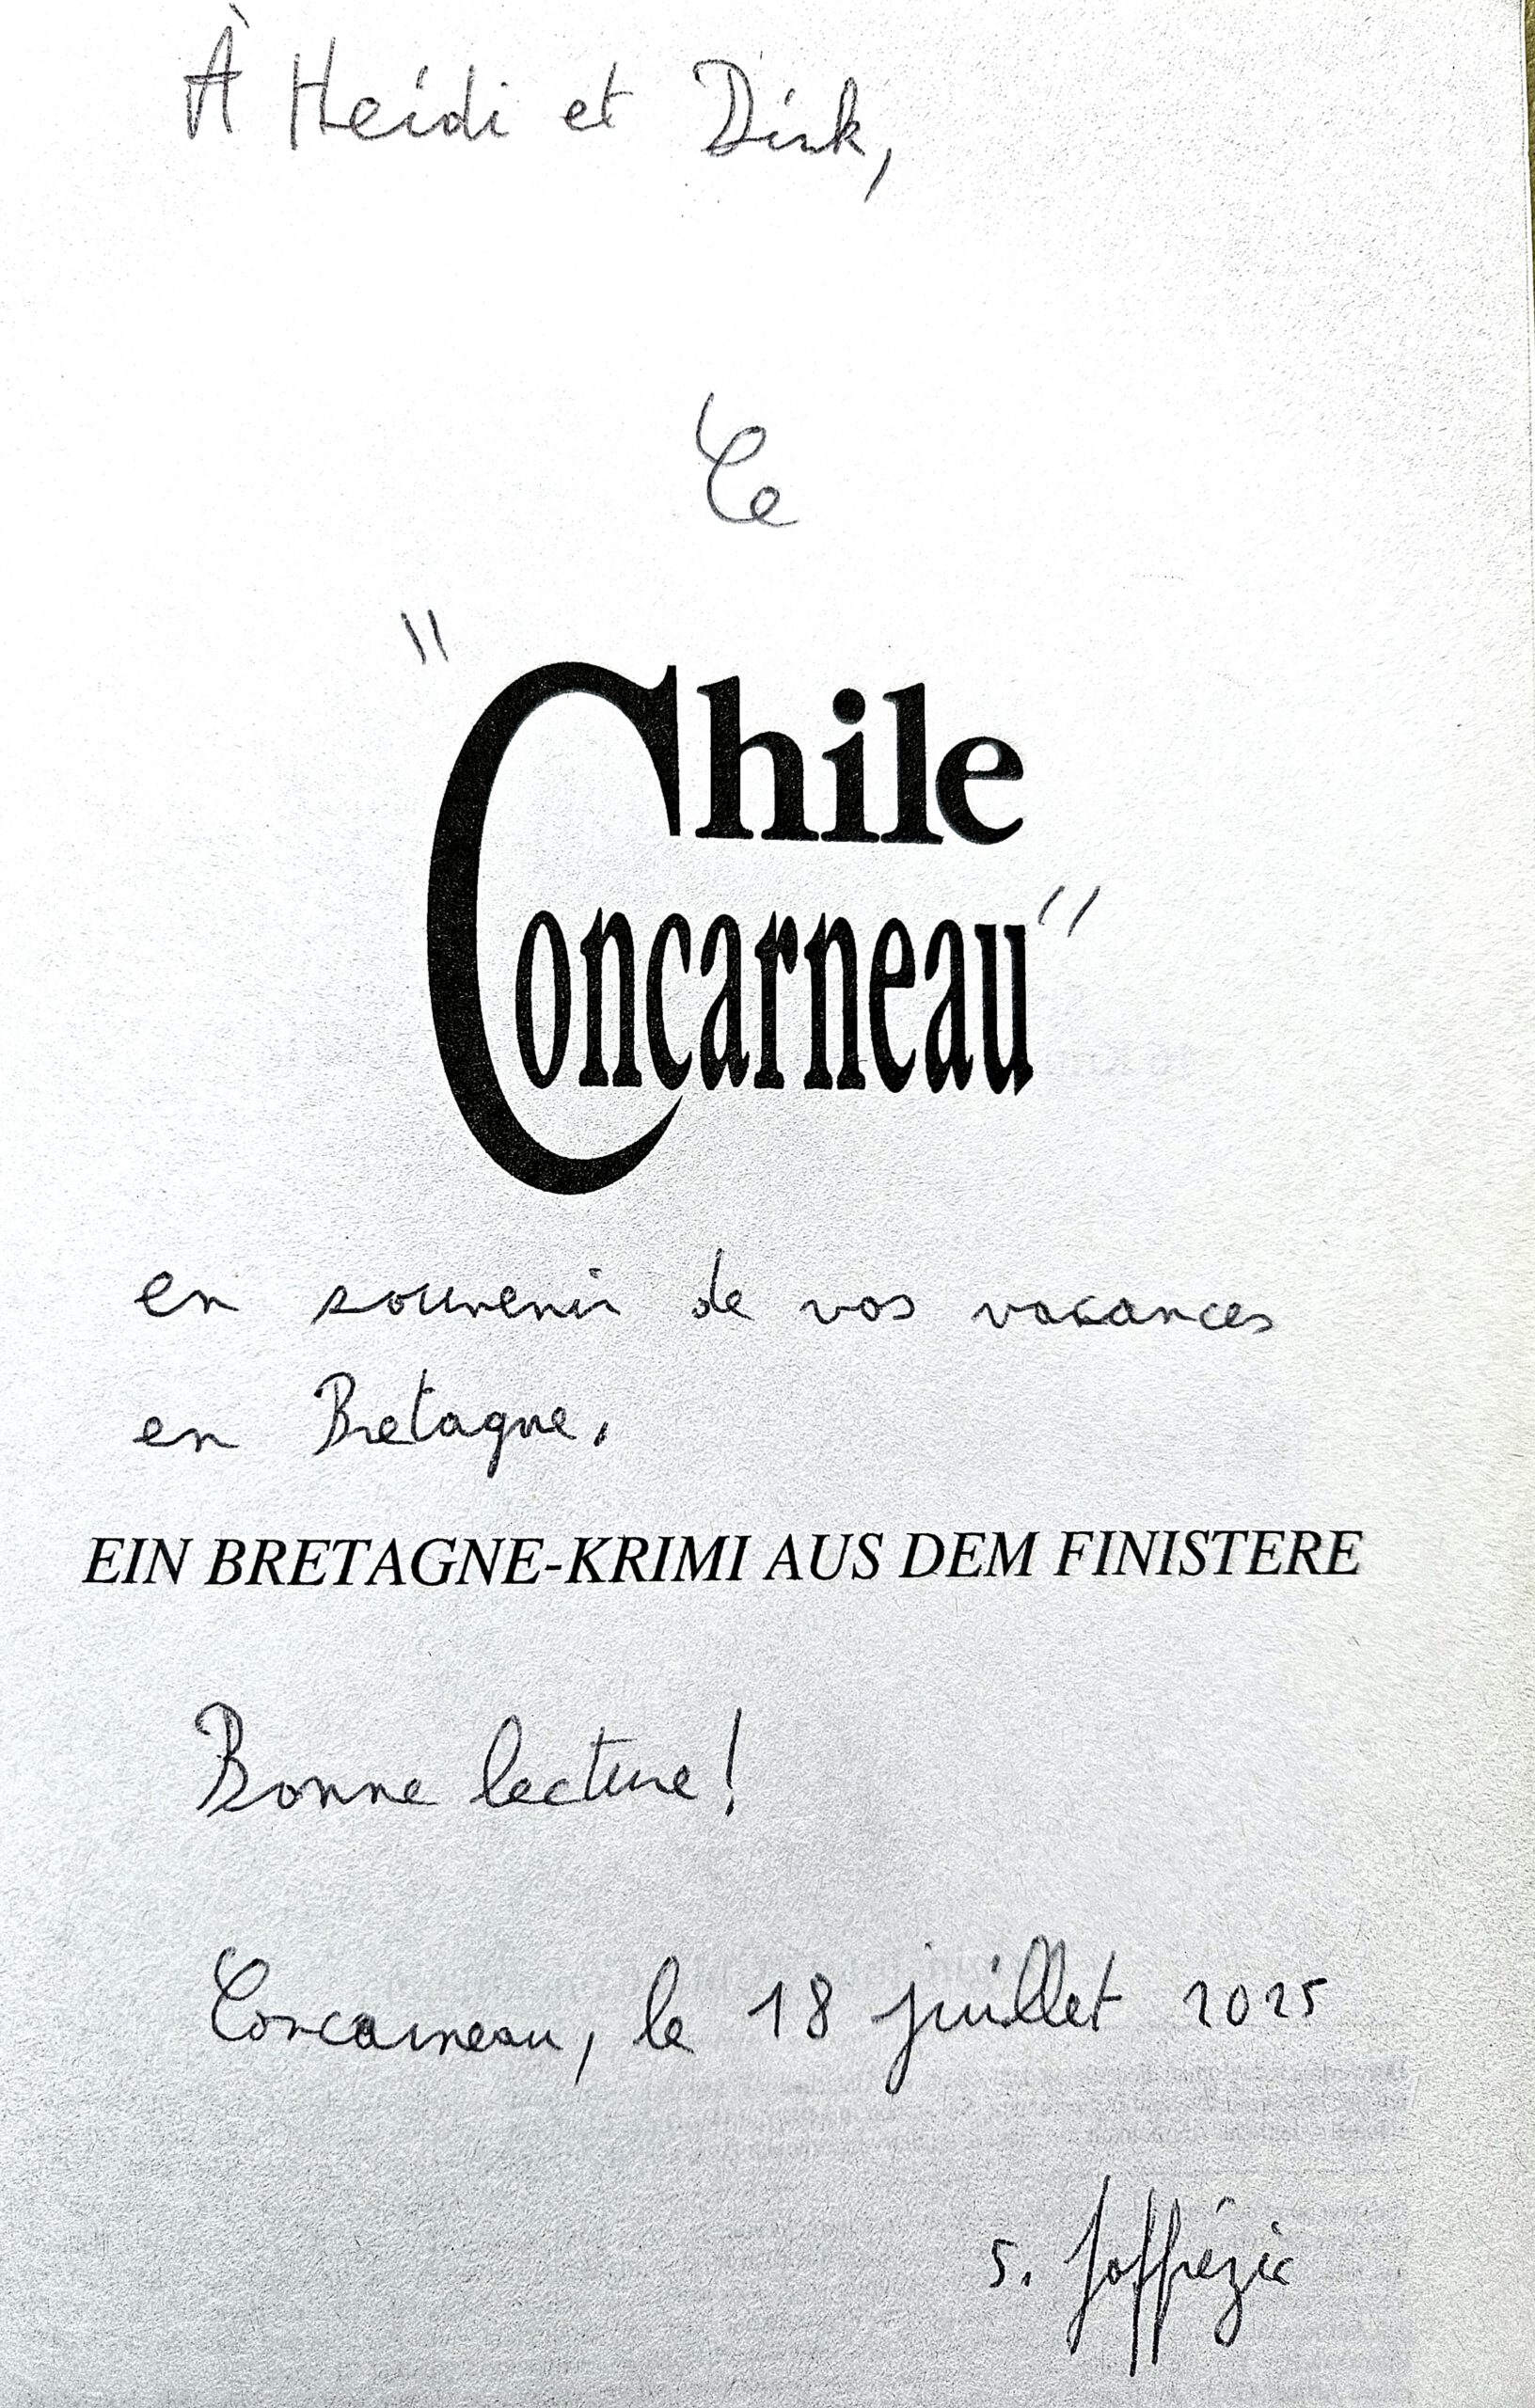 À Heidi et Dirk,
Ce
"Chile
Concarneau"
en souvenir de vos vacances
en Bretagne,
EIN BRETAGNE-KRIMI AUS DEM FINISTERE
Bonne lecture!
Concarneau, le 18 juillet 2025
S. Joffrézic